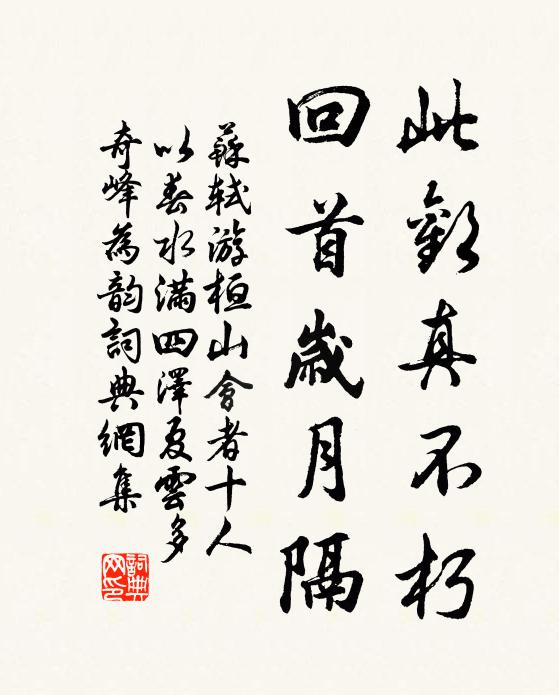 此歡真不朽
回首歲月隔
蘇軾游桓山會者十人
以春水滿四澤夏雲多
奇峰為韵詞典網集
詞典网印